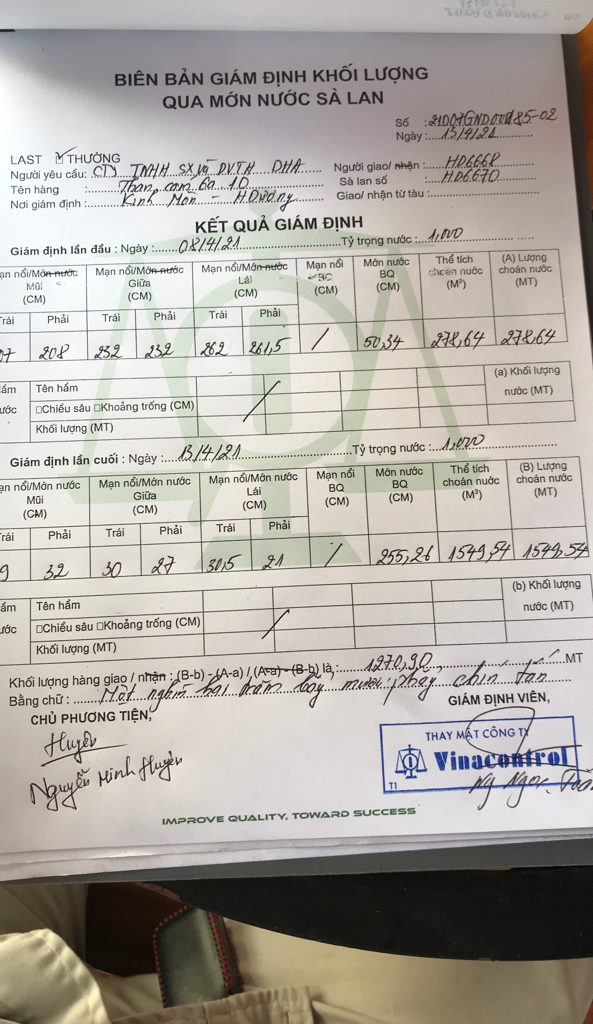 BIÊN BẢN GIÁM ĐỊNH KHỐI LƯỢNG
QUA MỚN NƯỚC SÀ LAN
Số :
Ngày : 13/4/21
LAST ☑ THƯỜNG
Người yêu cầu: CTy TNHH SX và DVTH DHA
Người giao/ nhận : HD6668
Tên hàng : Than cám 6a 10
Sà lan số : HD6670
Nơi giám định : Kinh Môn - HDương
Giao/ nhận từ tàu :
KẾT QUẢ GIÁM ĐỊNH
Giám định lần đầu : Ngày : 08/4/21 Tỷ trọng nước : 1,000
Mạn nổi/Mớn nước Mũi (CM) Mạn nổi/Mớn nước Giữa (CM) Mạn nổi/Mớn nước Lái (CM) Mạn nổi BQ (CM) Mớn nước BQ (CM) Thể tích choán nước (M³) (A) Lượng choán nước (MT)
Trái Phải Trái Phải Trái Phải
07 208 232 232 262 261,5 / 50,34 278,64 278,64
Tên hầm
(a) Khối lượng nước (MT)
□Chiều sâu □Khoảng trống (CM)
Khối lượng (MT)
Giám định lần cuối : Ngày : 13/4/21 Tỷ trọng nước : 1,000
Mạn nổi/Mớn nước Mũi (CM) Mạn nổi/Mớn nước Giữa (CM) Mạn nổi/Mớn nước Lái (CM) Mạn nổi BQ (CM) Mớn nước BQ (CM) Thể tích choán nước (M³) (B) Lượng choán nước (MT)
Trái Phải Trái Phải Trái Phải
9 32 30 27 30,5 21 / 255,26 1549,54 1549,54
Tên hầm
(b) Khối lượng nước (MT)
□Chiều sâu □Khoảng trống (CM)
Khối lượng (MT)
Khối lượng hàng giao / nhận : (B-b) - (A-a) / (A-a) - (B-b) là : 1270,90 MT
Bằng chữ : Một nghìn hai trăm bảy mươi phảy chín tấn
CHỦ PHƯƠNG TIỆN,
GIÁM ĐỊNH VIÊN,
Huyên
Nguyễn Minh Huyên
THAY MẶT CÔNG TY
Vinacontrol
T1
Ng Ngọc
IMPROVE QUALITY, TOWARD SUCCESS